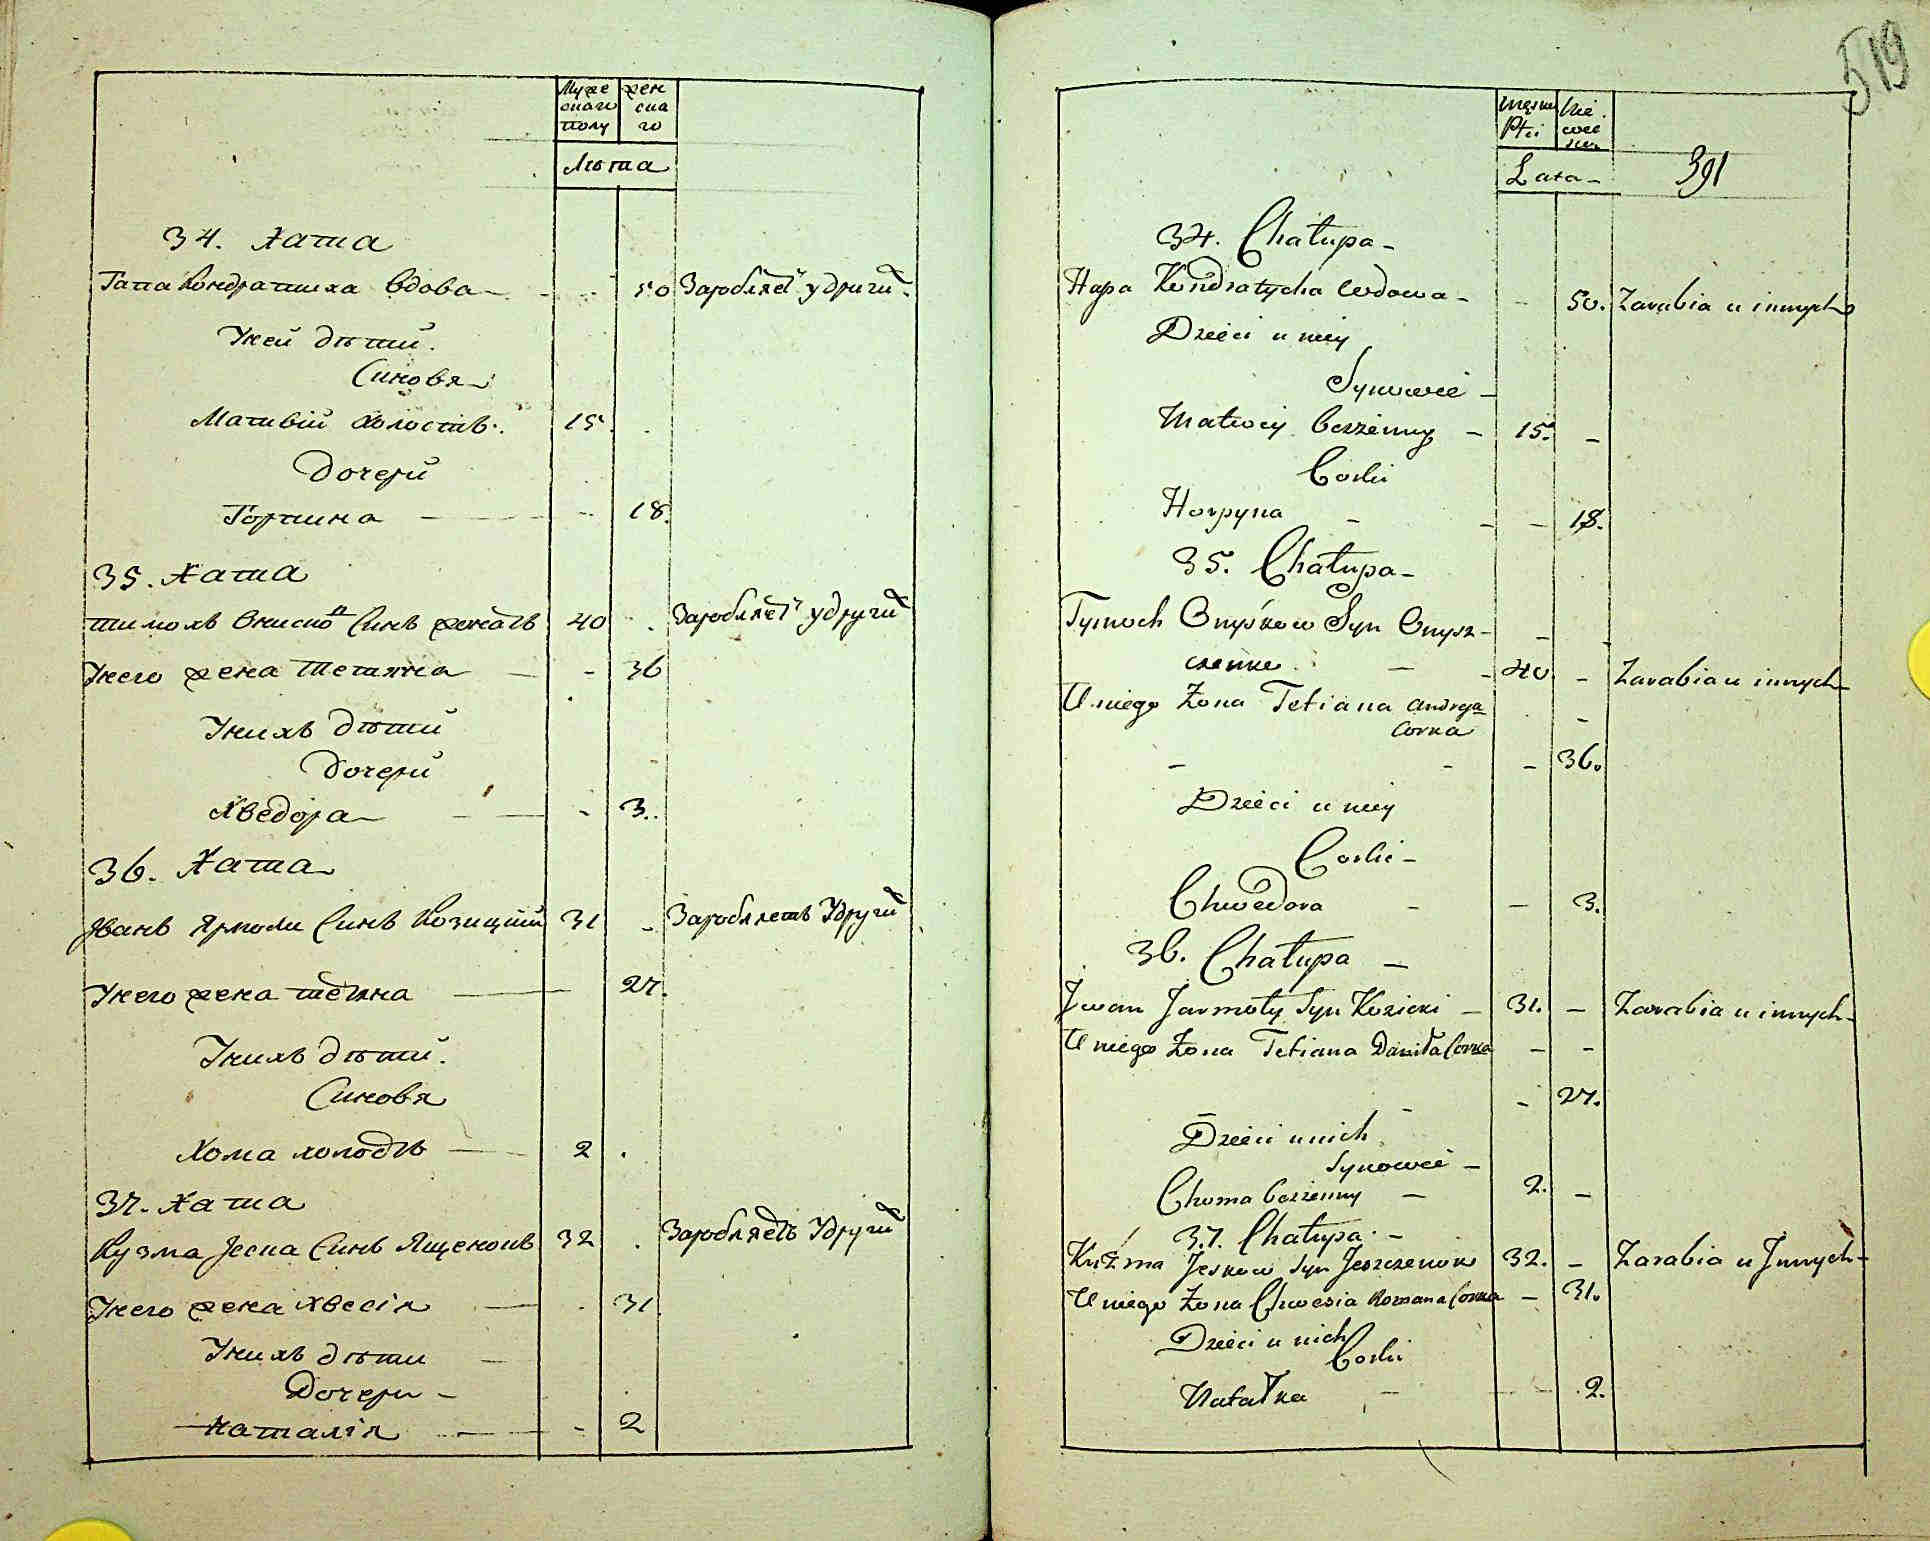 Муже
скаго
полу
жен
ска
го
Лѣта
34. Хата
Гапа Кондратиха вдова - 50 Заробляетъ у другий.
Уней дѣтий.
Синовя
Мативій холостъ. 15
Дочерй
Горпина - 18.
35. Хата
Тимохъ Ониско Синъ женатъ 40 Заробляетъ у другий
Унего жена Тетяна - 36
Унихъ дѣтий
Дочерй
Хведора - 3.
36. Хата
Иванъ Ярмоли Синъ Козицкий 31 - Заробляетъ Удругий
Унего жена Тетяна 27.
Унихъ дѣтий.
Синовя
Хома холостъ 2 .
37. Хата
Кузма Јеска Синъ Ященокъ 32 . Заробляетъ Удругий
Унего жена Хвесія - 31
Унихъ дѣти
Дочери -
Наталія - 2
519
męzkie
Płci
Nie
wie
scie
Lata -
391
34. Chałupa -
Hapa Kondratycha wdowa - - 50. Zarabia u innych
Dzieci u niey
Synowie -
Matwiy bezżenny - 15. -
Corki
Horpyna - - - 18.
35. Chałupa -
Tymoch Onyśkow Syn Onysz-
czenko - - 40. - Zarabia u innych
U niego Żona Tetiana Andryja
Corka
- - - 36.
Dzieci u niey
Corki -
Chwedora - - 3.
36. Chałupa -
Jwan Jarmoły Syn Kozicki - 31. - Zarabia u innych -
U niego Żona Tetiana Daniła Corka - -
- - - 27.
Dzieci u nich
Synowie -
Choma bezżenny - 2. -
37. Chałupa -
Kuźma Jeskow Syn Jeszczenok 32. - Zarabia u Jnnych -
U niego Żona Chwesia Romana Corka - 31.
Dzieci u nich
Corki
Natałka - - - 2.